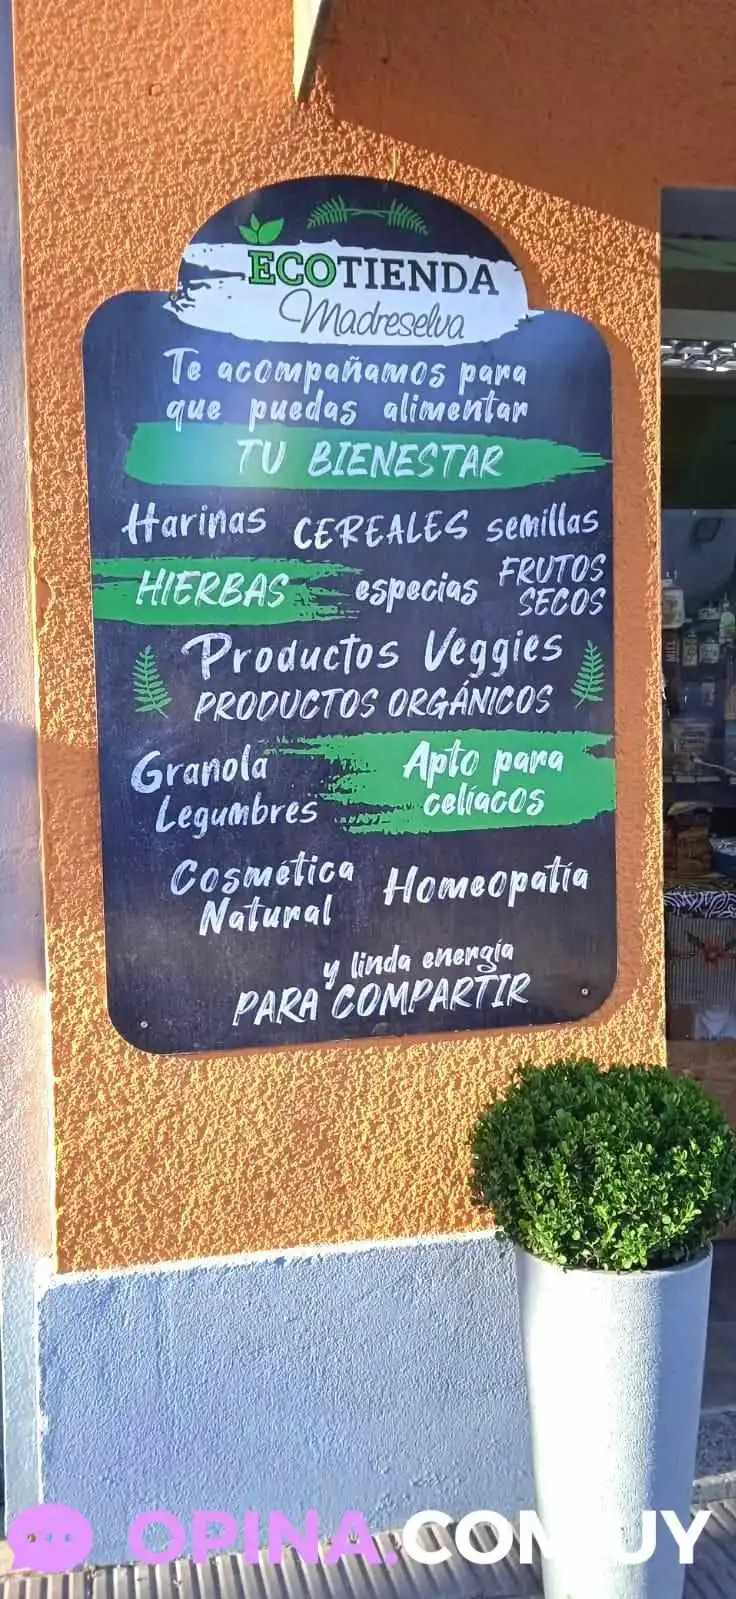 ECOTIENDA
Madreselva
Te acompañamos para
que puedas alimentar
TU BIENESTAR
Harinas CEREALES semillas
HIERBAS especias FRUTOS SECOS
Productos Veggies
PRODUCTOS ORGÁNICOS
Granola
Legumbres
Apto para
celíacos
Cosmética
Natural
Homeopatía
y linda energía
PARA COMPARTIR
OPINA.COM.UY